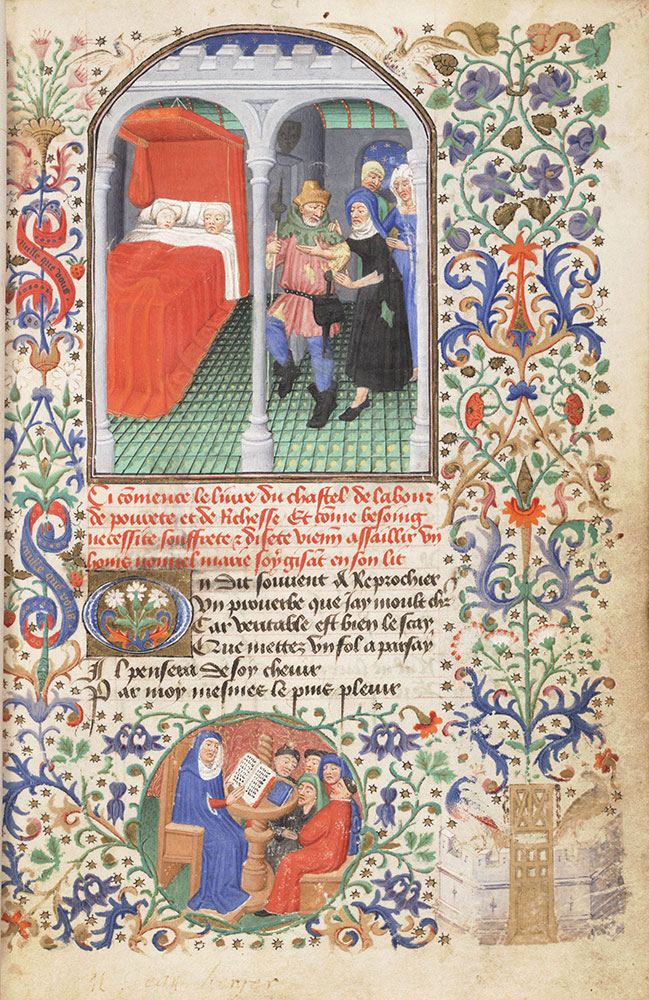 Ci comence le livre du chastel de labour
de povrete et de Richesse Et come besoing
necessite souffrete & disete vienn assaillir un
home nouvel marie soy gisant en son lit
On dit souvent & Reprochier
Un proverbe que jay moult ch
Car veritable est bien le scay
Que mettez un fol a par say
Il pensera de soy chevir
Par moy mesmes le puis plevir
nulle que vous
nulle que vous